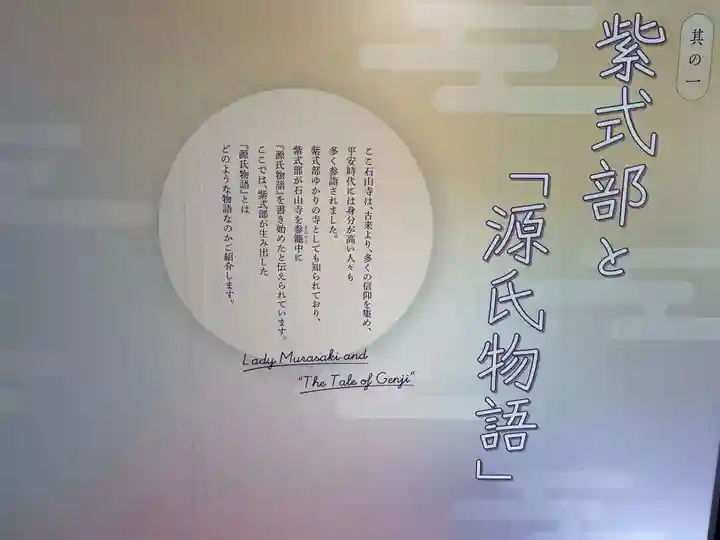 其の一
紫式部と
「源氏物語」
ここ石山寺は、古来より、多くの信仰を集め、
平安時代には身分が高い人々も
多く参詣されました。
紫式部ゆかりの寺としても知られており、
紫式部が石山寺を参籠中に
『源氏物語』を書き始めたと伝えられています。
ここでは、紫式部が生み出した
『源氏物語』とは
どのような物語なのかご紹介します。
Lady Murasaki and
"The Tale of Genji"